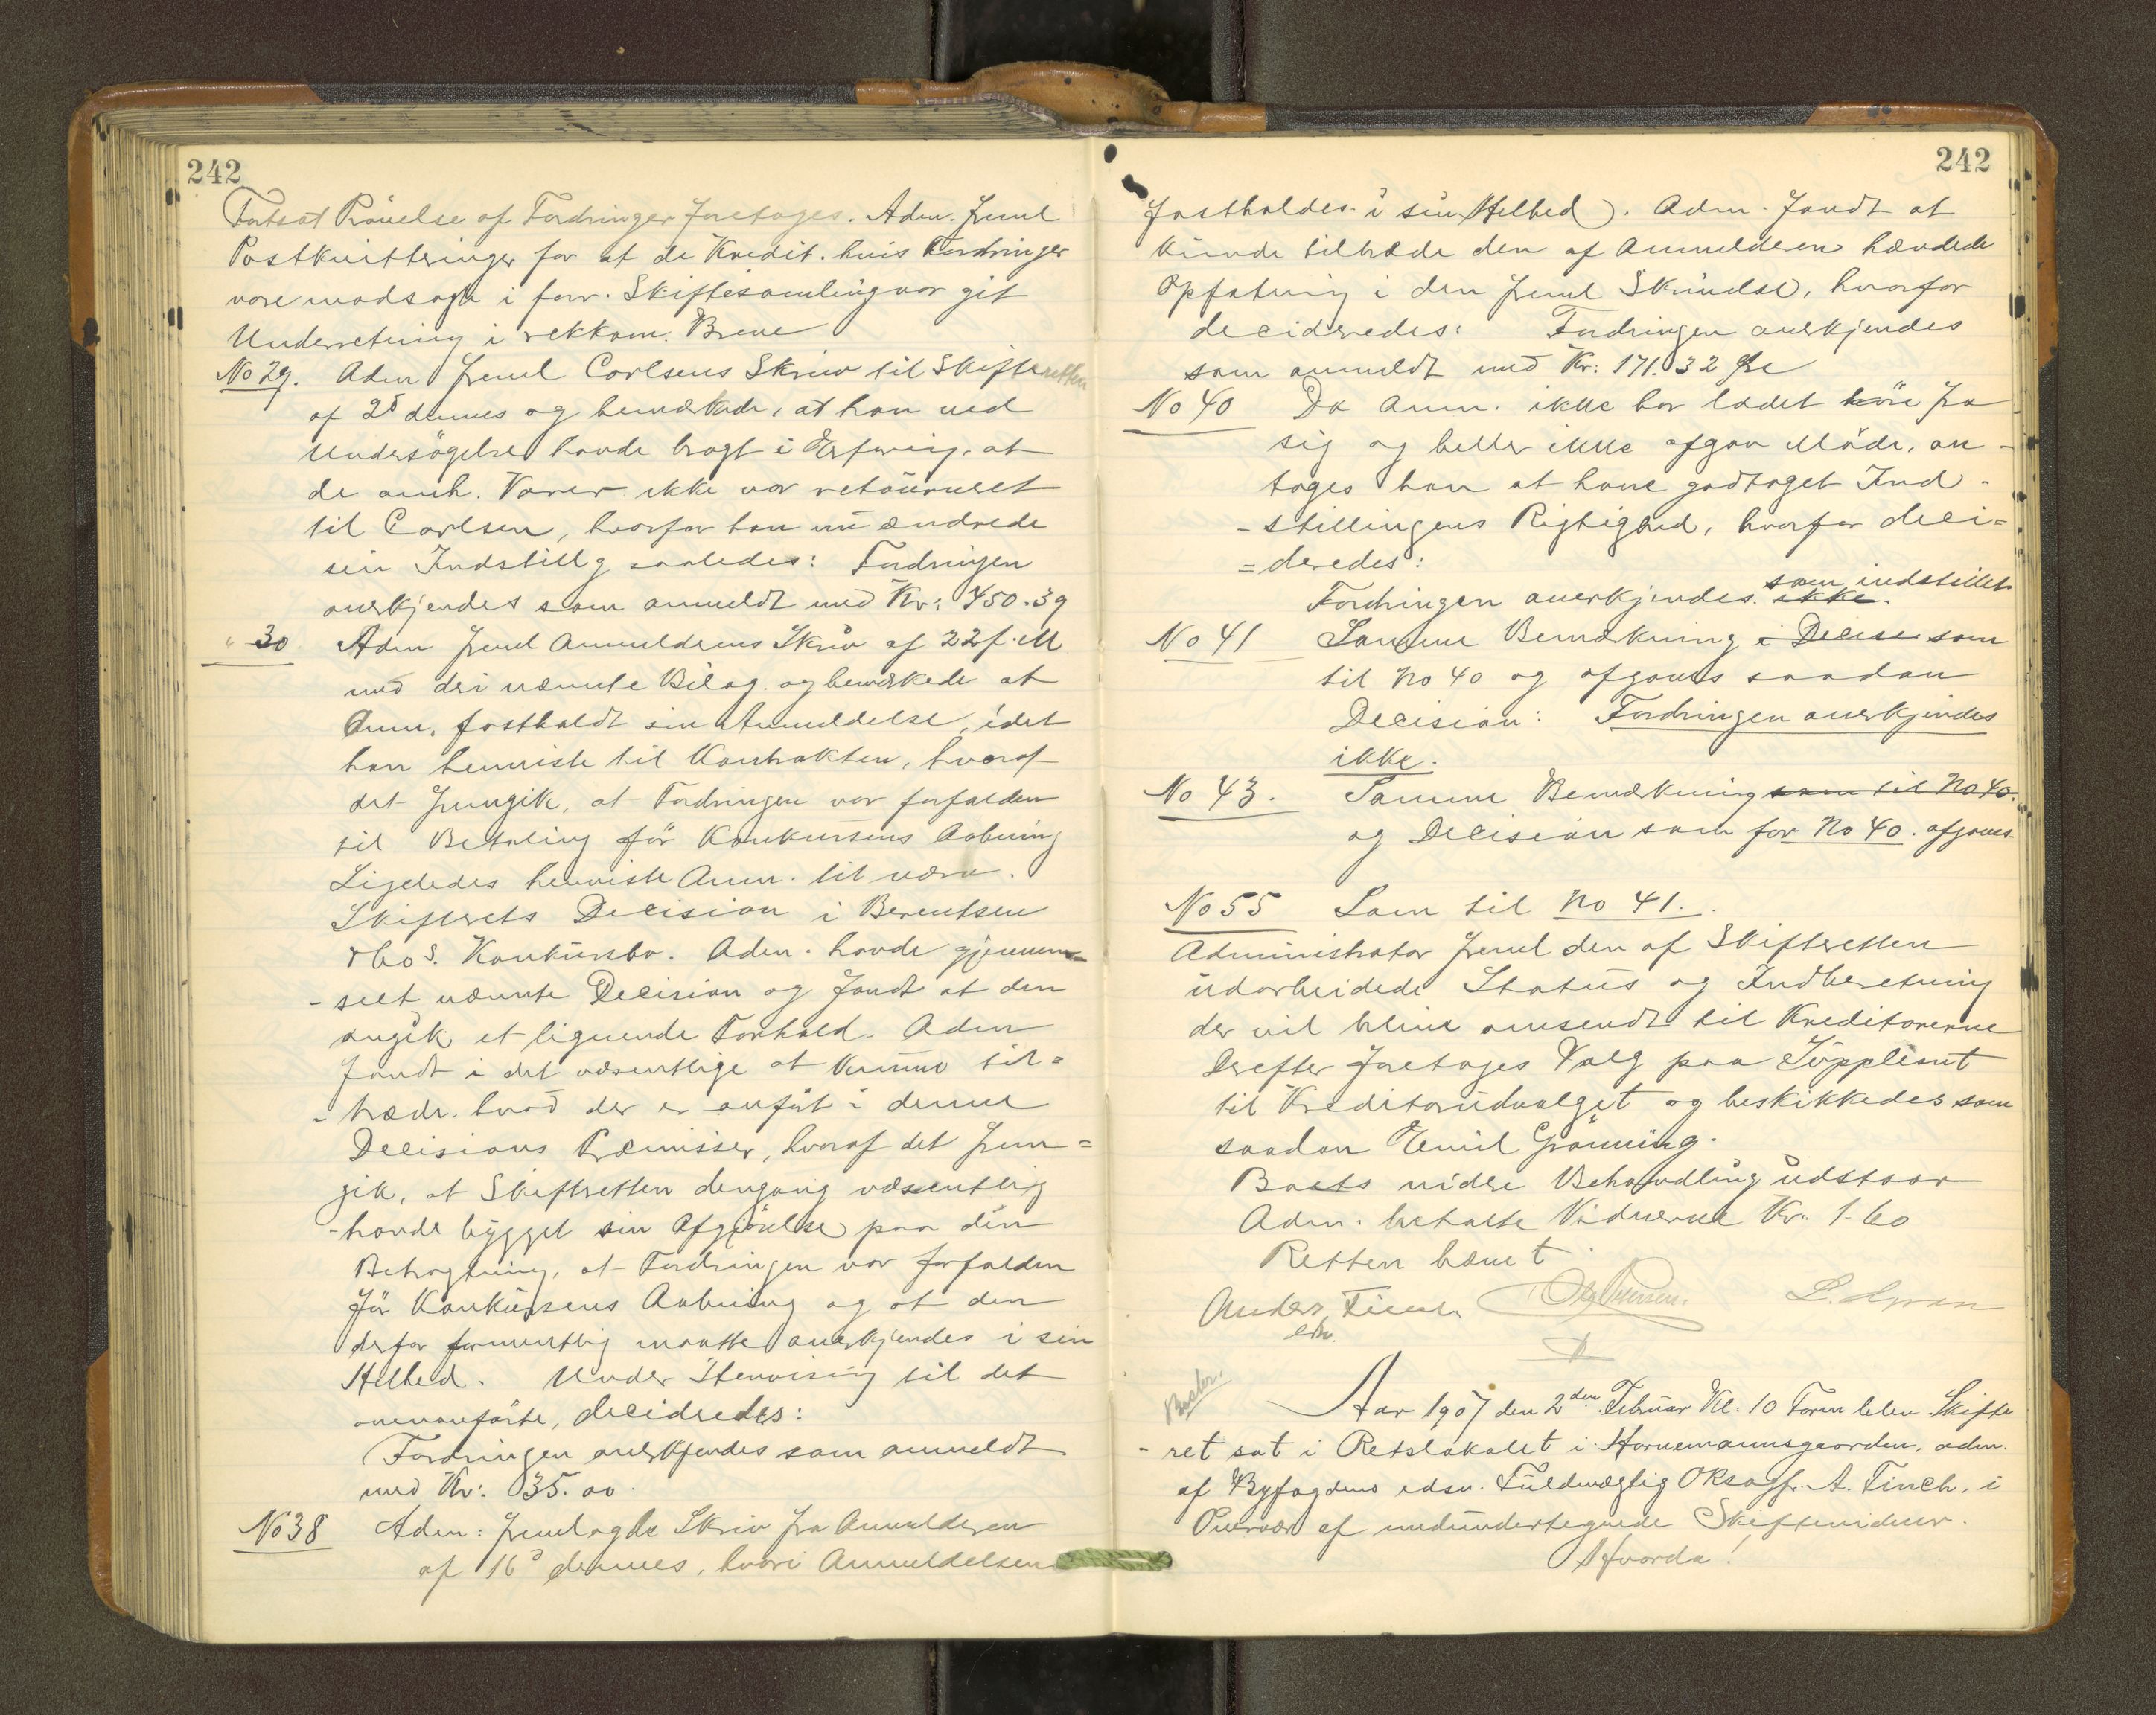 242
Fortsat Prövelse af Fordringer foretoges. Adm. freml
Postkvitteringer for at de Kredit. hvis Fordringer
vare modsagte i forr. Skiftesamling var git
Underretning i rekkom. Breve
No 29. Adm freml Carlsens Skriv til Skifteretten
af 25 dennes og bemærkede, at han ved
Undersögelse havde bragt i Erfaring, at
de omh. Varer ikke var retourneret
til Carlsen, hvorfor han nu ændrede
sin Indstillg saaledes: Fordringen
anerkjendes som anmeldt med Kr: 450.39
" 30 Adm freml Anmelderens Skriv af 22 f. M
med de i nævnte Bilag og bemærkede at
Anm. fastholdt sin Anmeldelse, idet
han henviste til Kontrakten, hvoraf
det fremgik, at Fordringen var forfalden
til Betaling för Konkursens Aabning
Ligeledes henviste Anm. til nærv.
Skifterets Decision i Berentsen
& Cos. Konkursbo. Adm. havde gjennem=
- seet nævnte Decision og fandt at den
angik et lignende Forhold. Adm
fandt i det væsentlige at kunne til=
- træde hvad der er anfört i denne
Decisions Præmisser, hvoraf det frem=
gik, at Skifteretten dengang væsentlig
- havde bygget sin Afgjörelse paa den
Betragtning, at Fordringen var forfalden
för Konkursens Aabning og at den
derfor formentlig maatte anerkjendes i sin
Helhed. Under Henvisning til det
ovenanförte, decideredes:
Fordringen anerkjendes som anmeldt
med Kr: 35.00.
No 38 Adm: fremlagde Skriv fra Anmelderen
af 16d dennes, hvori Anmeldelsen
242
fastholdes i sin Helhed. Adm. fandt at
kunde tiltræde den af Anmelderen hævdede
Opfatning i den freml Skrivelse, hvorfor
decideredes: Fordringen anerkjendes
som anmeldt med Kr: 171.32 Øre
No 40 Da Anm. ikke har ladet höre fra
sig og heller ikke afgav Möde, an-
tages han at have godtaget Ind-
- stillingens Rigtighed, hvorfor deci=
= deredes:
Fordringen anerkjendes ikke. som indstillet
No 41 Samme Bemærkning i Decise som
til No 40 og afgaves saadan
Decision: Fordringen anerkjendes
ikke.
No 43. Samme Bemærkning som til No 40.
og Decision som for No 40. afgaves.
No 55 Som til No 41.
Administrator freml den af Skifteretten
udarbeidede Status og Indberetning
der vil blive omsendt til Kreditorerne
Derefter foretoges Valg paa Suppleant
til Kreditorudvalget og beskikkedes som
saadan Emil Grönning.
Boets videre Behandling udstaar
Adm. betalte Vidnerne Kr. 1-60
Retten hævet
Anders Finch
edsv.
Aar 1907 den 2den Februar Kl. 10 Form blev Skifte
- ret sat i Retslokalet i Hornemannsgaarden, adm.
af Byfogdens edsv. Fuldmægtig OKsagf. A. Finch, i
Overvær af medundertegnede Skiftevidner.
Hvorda!